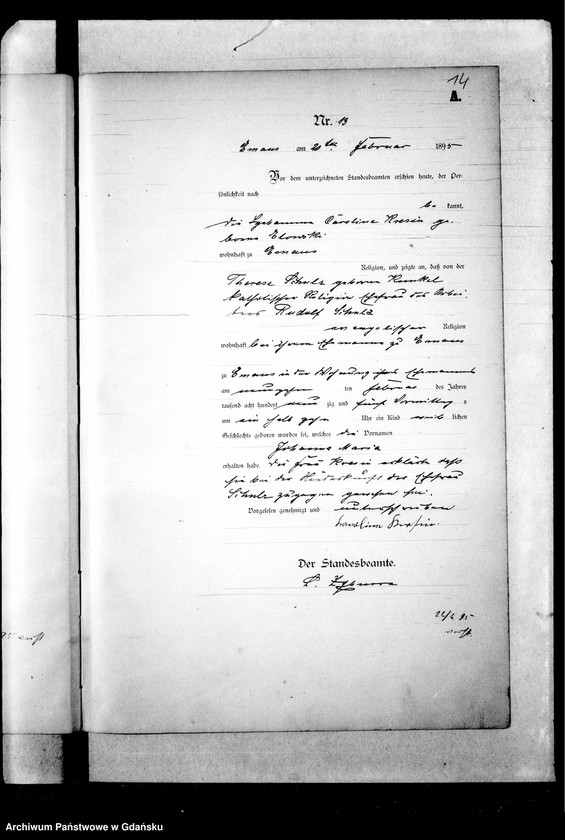 14
A.
Nr. 13
Emaus am 20ten Februar 1895
Vor dem unterzeichneten Standesbeamten erschien heute, der Per-
sönlichkeit nach
be kannt,
die Hebamme Caroline Kresin ge-
borene
wohnhaft zu Emaus
Religion, und zeigte an, daß von der
Therese Schulz geborene Kunkel
katholischer Religion Ehefrau des Arbei-
ters Rudolf Schulz
evangelischer Religion
wohnhaft bei ihrem Ehemanne zu Emaus
zu Emaus in der Wohnung ihres Ehemannes
am neunzehn ten Februar des Jahres
tausend acht hundert neun zig und fünf Vormittag s
um ein halb zehn Uhr ein Kind weib lichen
Geschlechts geboren worden sei, welches die Vornamen
Johanna Maria
erhalten habe. Die Frau Kresin erklärte daß
sie bei der Niederkunft der Ehefrau
Schulz zugegen gewesen sei.
Vorgelesen, genehmigt und unterschrieben
Caroline Kresin.
Der Standesbeamte.
Archiwum Państwowe w Gdańsku